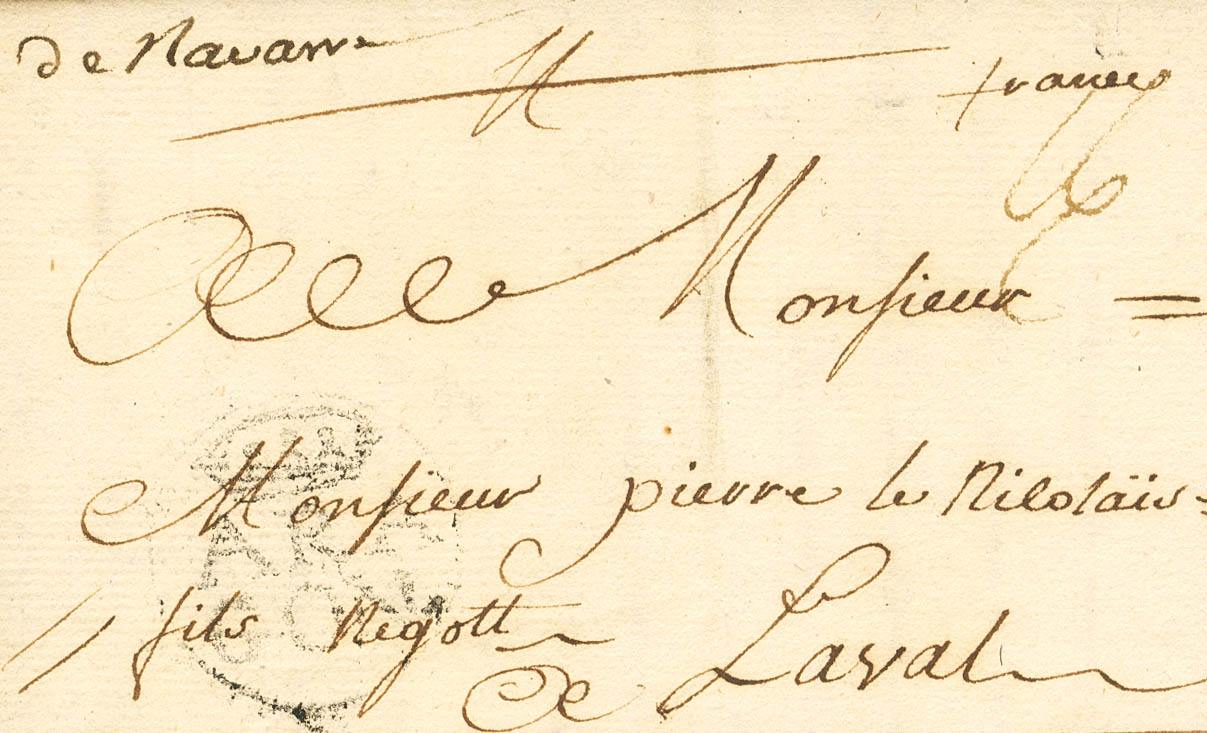 de Navarre
france
A Monsieur =
Monsieur pierre le Nicolaïs =
fils Negott
A Laval